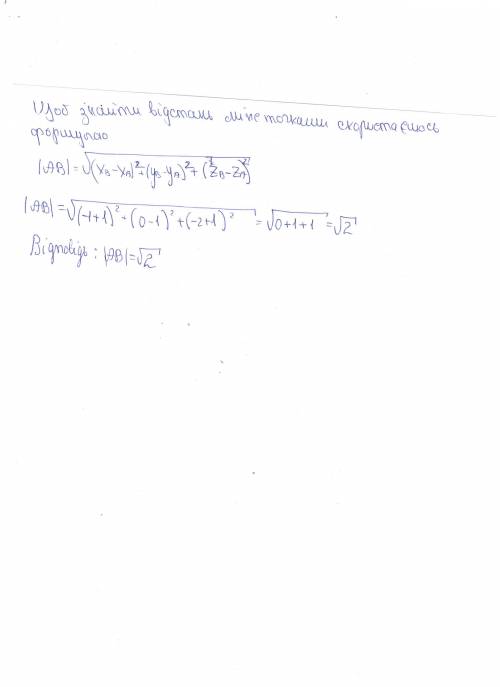 Щоб знайти відстань між точками скористаємось
формулою
|AB|=√(x_B-x_A)²+(y_B-y_A)²+(z_B-z_A)²
|AB|=√(-1+1)²+(0-1)²+(-2+1)² =√0+1+1 =√2
Відповідь: |AB|=√2